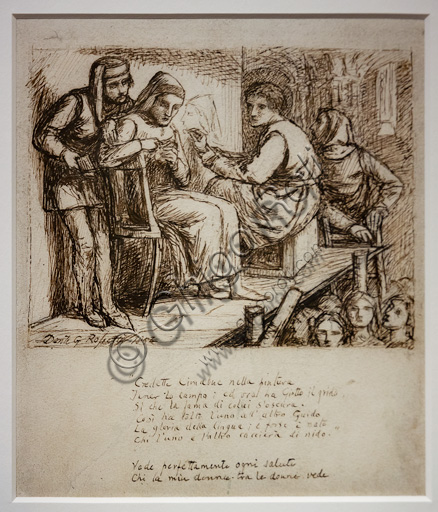 Dante G. Rossetti
Credette Cimabue nella pintura
Tener lo campo; ed ora ha Giotto il grido,
Sì che la fama di colui s'oscura.
Così ha tolto l'uno a l'altro Guido
La gloria della lingua; e forse è nato
Chi l'uno e l'altro caccierà di nido.
Vede perfettamente ogni salute
Chi la mia donna tra le donne vede